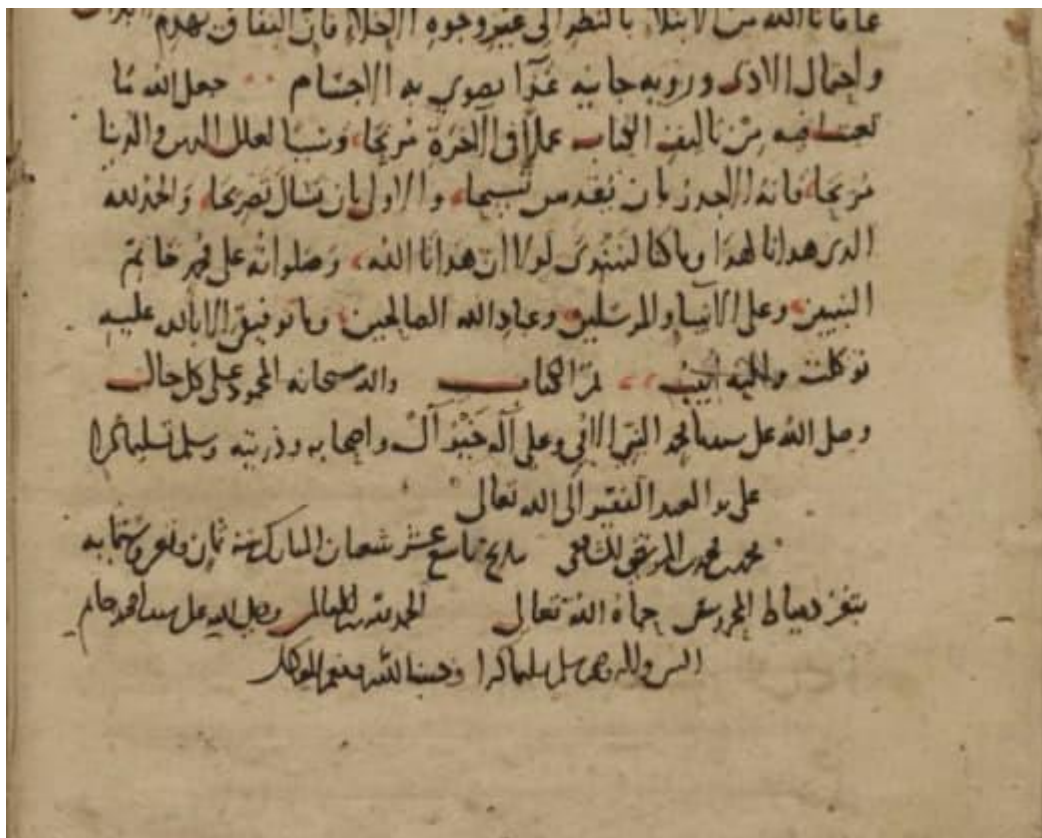 عافانا الله من الابتلاء بالنظر الى غير وجوه الاجلاء فان النفاق يهدم
واحتمال الاذى وروية جانيه غدا يضوي به الاجسام جعل الله ما
من تاليف الكتاب عملا في الاخرة مربحا وسببا لعلل الدين والدنيا
مزيحا فانه الاجدر بان يقدس تسبيحا والاولى بان تصريحا والحمد لله
الذي هدانا لهذا وما كنا لنهتدى لولا ان هدانا الله وصلواته على محمد خاتم
النبيين وعلى الانبياء والمرسلين وعباد الله الصالحين وما توفيق الا بالله عليه
توكلت واليه انيب تم الكتاب والله سبحانه المحمود على كل حال
وصلى الله على سيدنا محمد النبي الامي وعلى آله خير آل واصحابه وذريته وسلم تسليما كثيرا
على يد العبد الفقير الى الله تعالى
محمد بن محمد الشافعي بتاريخ تاسع عشر شعبان المبارك سنة ثمان
بثغر دمياط المحروس حماه الله تعالى الحمد لله رب العالمين وصلى الله على سيدنا محمد خاتم
النبيين واله وصحبه وسلم تسليما كثيرا وحسبنا الله ونعم الوكيل